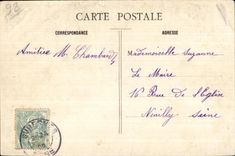 CARTE POSTALE
CORRESPONDANCE
ADRESSE
Amitiés M. Chambaud
Mademoiselle Suzanne
Le Maire
16 Rue De l'Eglise
Neuilly - Seine